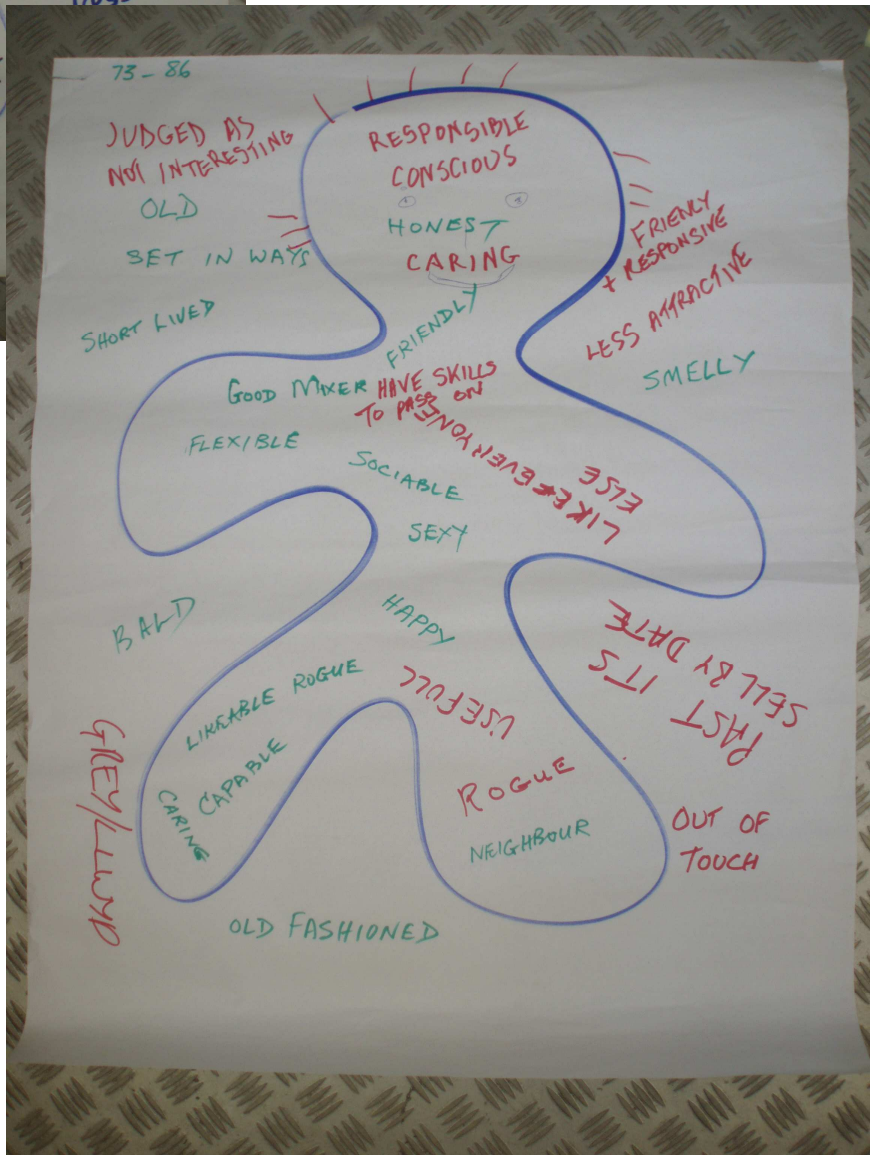 73 - 86
JUDGED AS
NOT INTERESTING
OLD
SET IN WAYS
SHORT LIVED
RESPONSIBLE
CONSCIOUS
HONEST
CARING
FRIENDLY
FRIENLY
+ RESPONSIVE
LESS ATTRACTIVE
SMELLY
GOOD MIXER
HAVE SKILLS
TO PASS ON
FLEXIBLE
SOCIABLE
SEXY
LIKE EVERYONE
ELSE
BALD
HAPPY
LIKEABLE ROGUE
CAPABLE
CARING
USEFULL
ROGUE
NEIGHBOUR
PAST
IT'S
SELL BY DATE
OUT OF
TOUCH
GREY/LLWYD
OLD FASHIONED